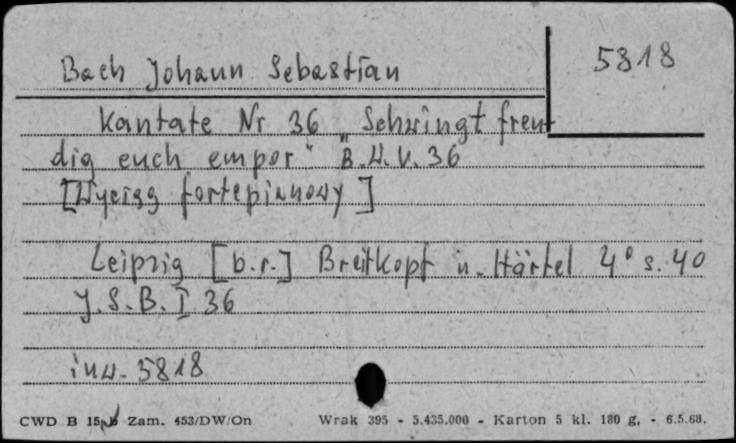 Bach Johann Sebastian
5818
Kantate Nr 36 „Schwingt freu-
dig euch empor" B.W.V. 36
[Wyciąg fortepianowy]
Leipzig [b.r.] Breitkopf u. Härtel 4° s. 40
J.S.B. I 36
inw. 5818
CWD B 15 Zam. 453/DW/On Wrak 395 - 5.435.000 - Karton 5 kl. 180 g, - 6.5.68.